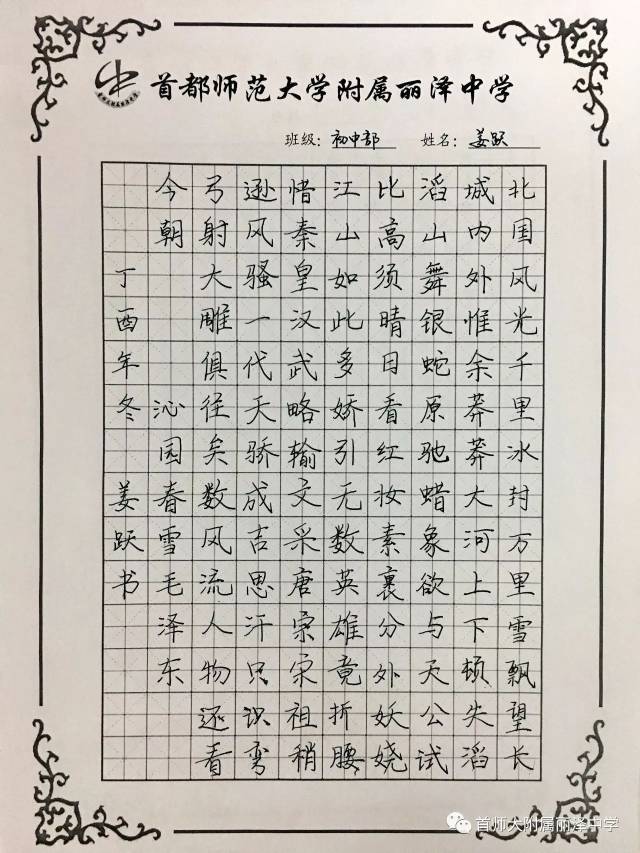 首都师范大学附属丽泽中学
班级：初中部 姓名：姜跃
北国风光千里冰封万里雪飘望长
城内外惟余莽莽大河上下顿失滔
滔山舞银蛇原驰蜡象欲与天公试
比高须晴日看红妆素裹分外妖娆
江山如此多娇引无数英雄竟折腰
惜秦皇汉武略输文采唐宗宋祖稍
逊风骚一代天骄成吉思汗只识弯
弓射大雕俱往矣数风流人物还看
今朝 沁园春雪毛泽东
丁酉年冬 姜跃书
首师大附属丽泽中学